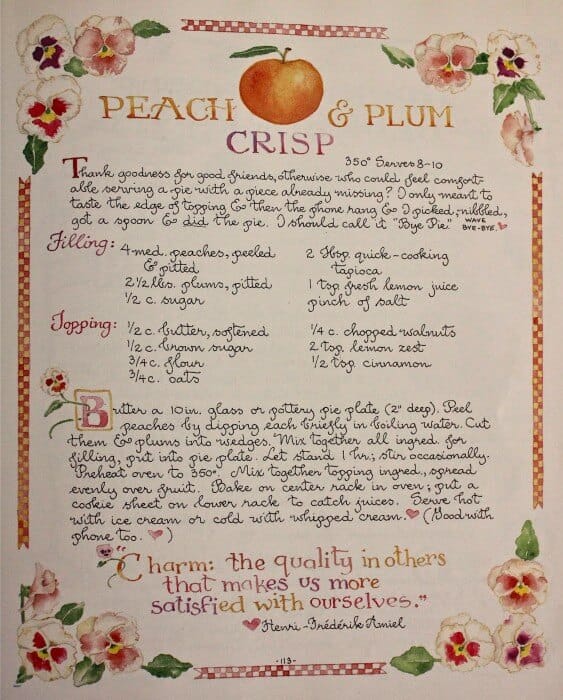 PEACH & PLUM
CRISP
350° Serves 8-10
Thank goodness for good friends, otherwise who could feel comfort-
able serving a pie with a piece already missing? I only meant to
taste the edge of topping & then the phone rang & I picked, nibbled,
got a spoon & did the pie. I should call it "Bye Pie." WAVE
BYE-BYE.
Filling:
4 med. peaches, peeled
& pitted
2 1/2 lbs. plums, pitted
1/2 c. sugar
2 tbsp. quick-cooking
tapioca
1 tsp fresh lemon juice
pinch of salt
Topping:
1/2 c. butter, softened
1/2 c. brown sugar
3/4 c. flour
3/4 c. oats
1/4 c. chopped walnuts
2 tsp. lemon zest
1/2 tsp. cinnamon
Butter a 10 in. glass or pottery pie plate (2" deep). Peel
peaches by dipping each briefly in boiling water. Cut
them & plums into wedges. Mix together all ingred. for
filling, put into pie plate. Let stand 1 hr.; stir occasionally.
Preheat oven to 350°. Mix together topping ingred., spread
evenly over fruit. Bake on center rack in oven; put a
cookie sheet on lower rack to catch juices. Serve hot
with ice cream or cold with whipped cream. (Good with
phone too. )
"Charm: the quality in others
that makes us more
satisfied with ourselves."
Henri-Frédérik Amiel
·113·